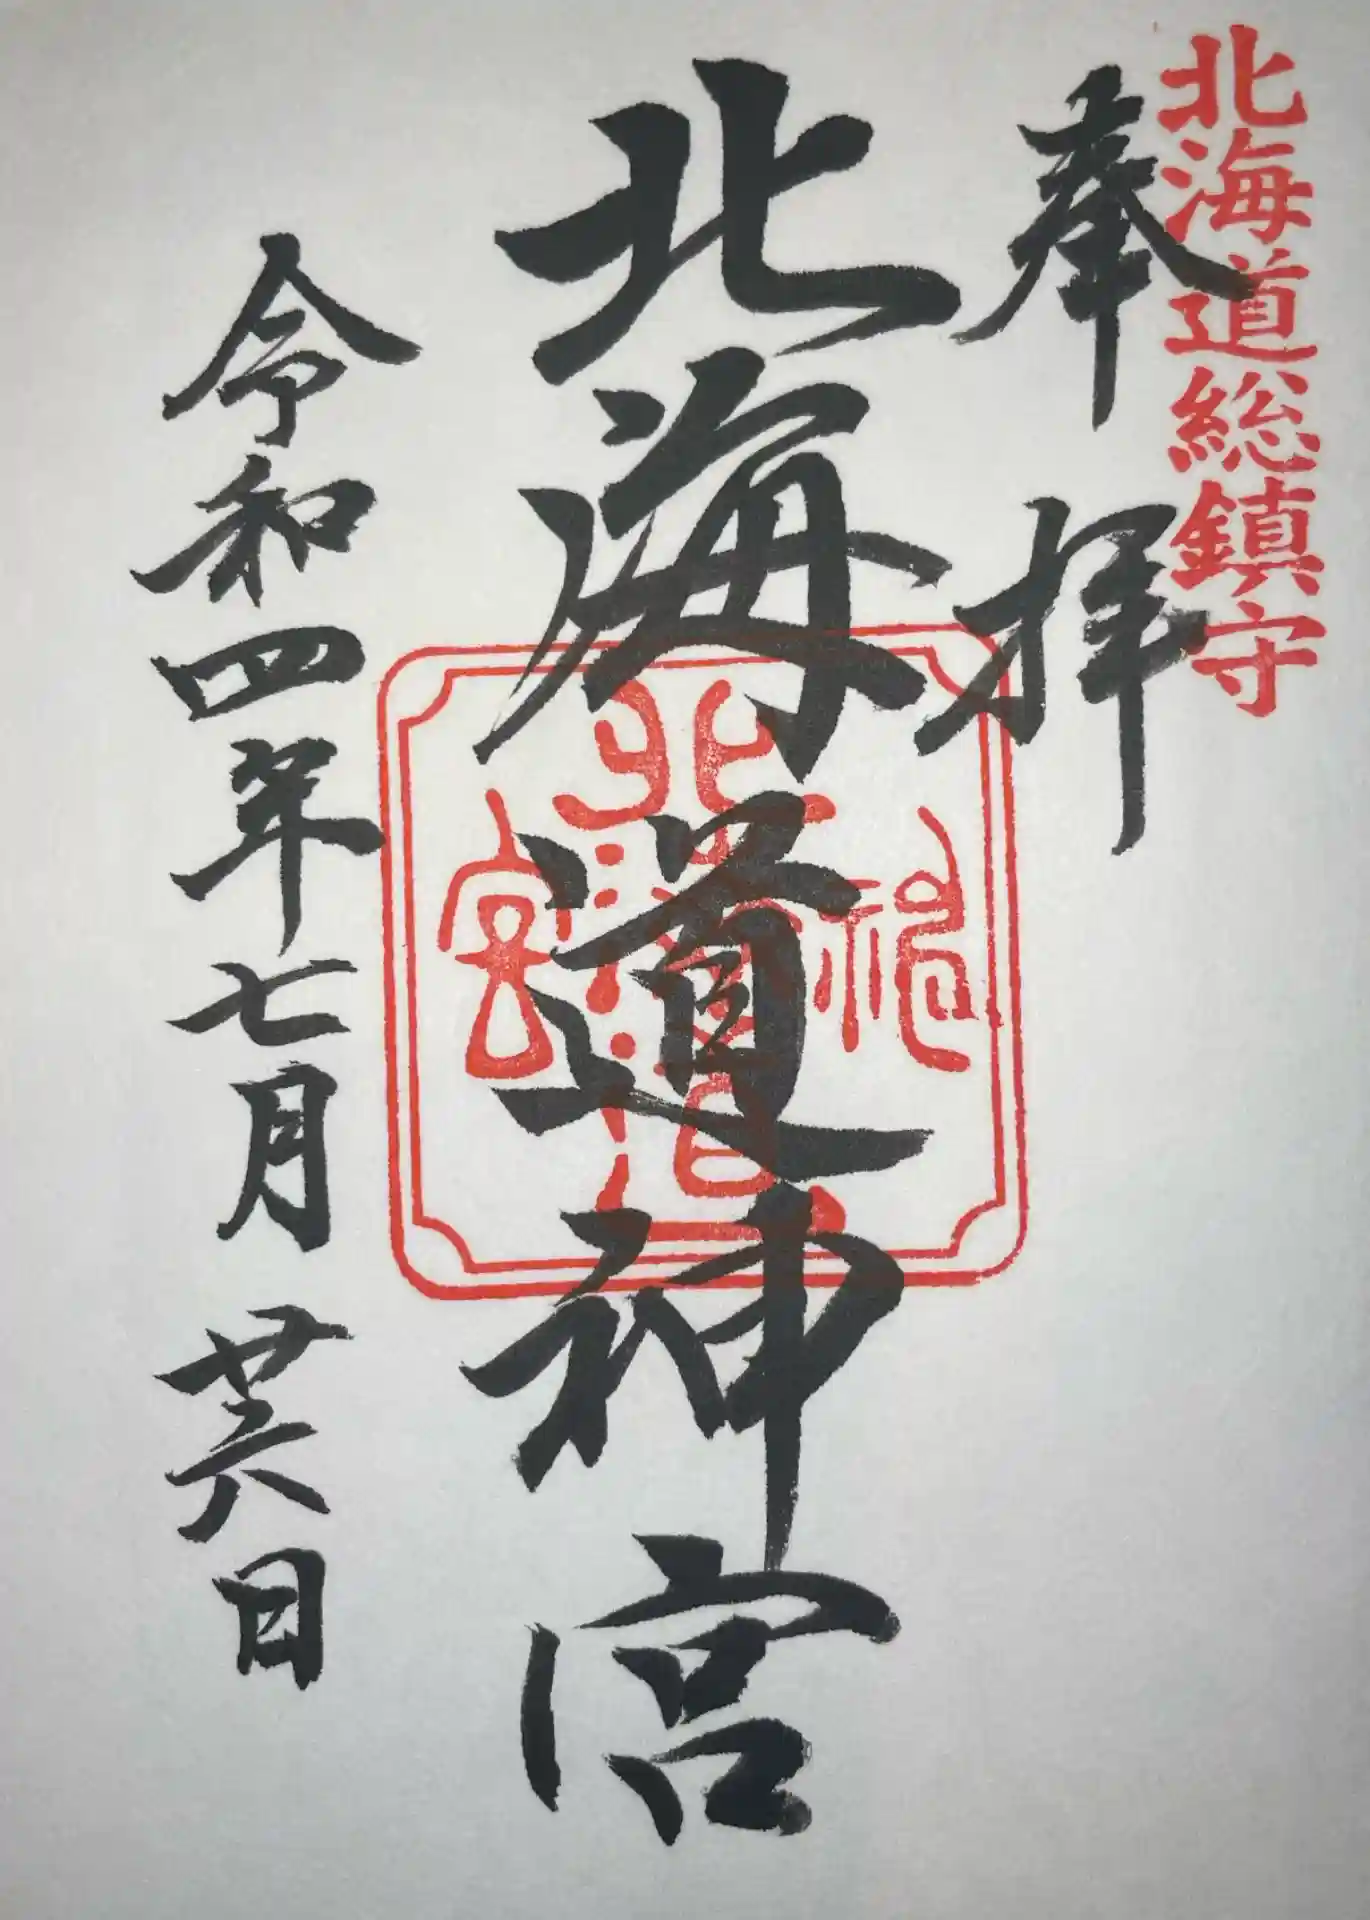 北海道総鎮守
奉拝
北海道神宮
北海道神宮
令和四年七月廿六日